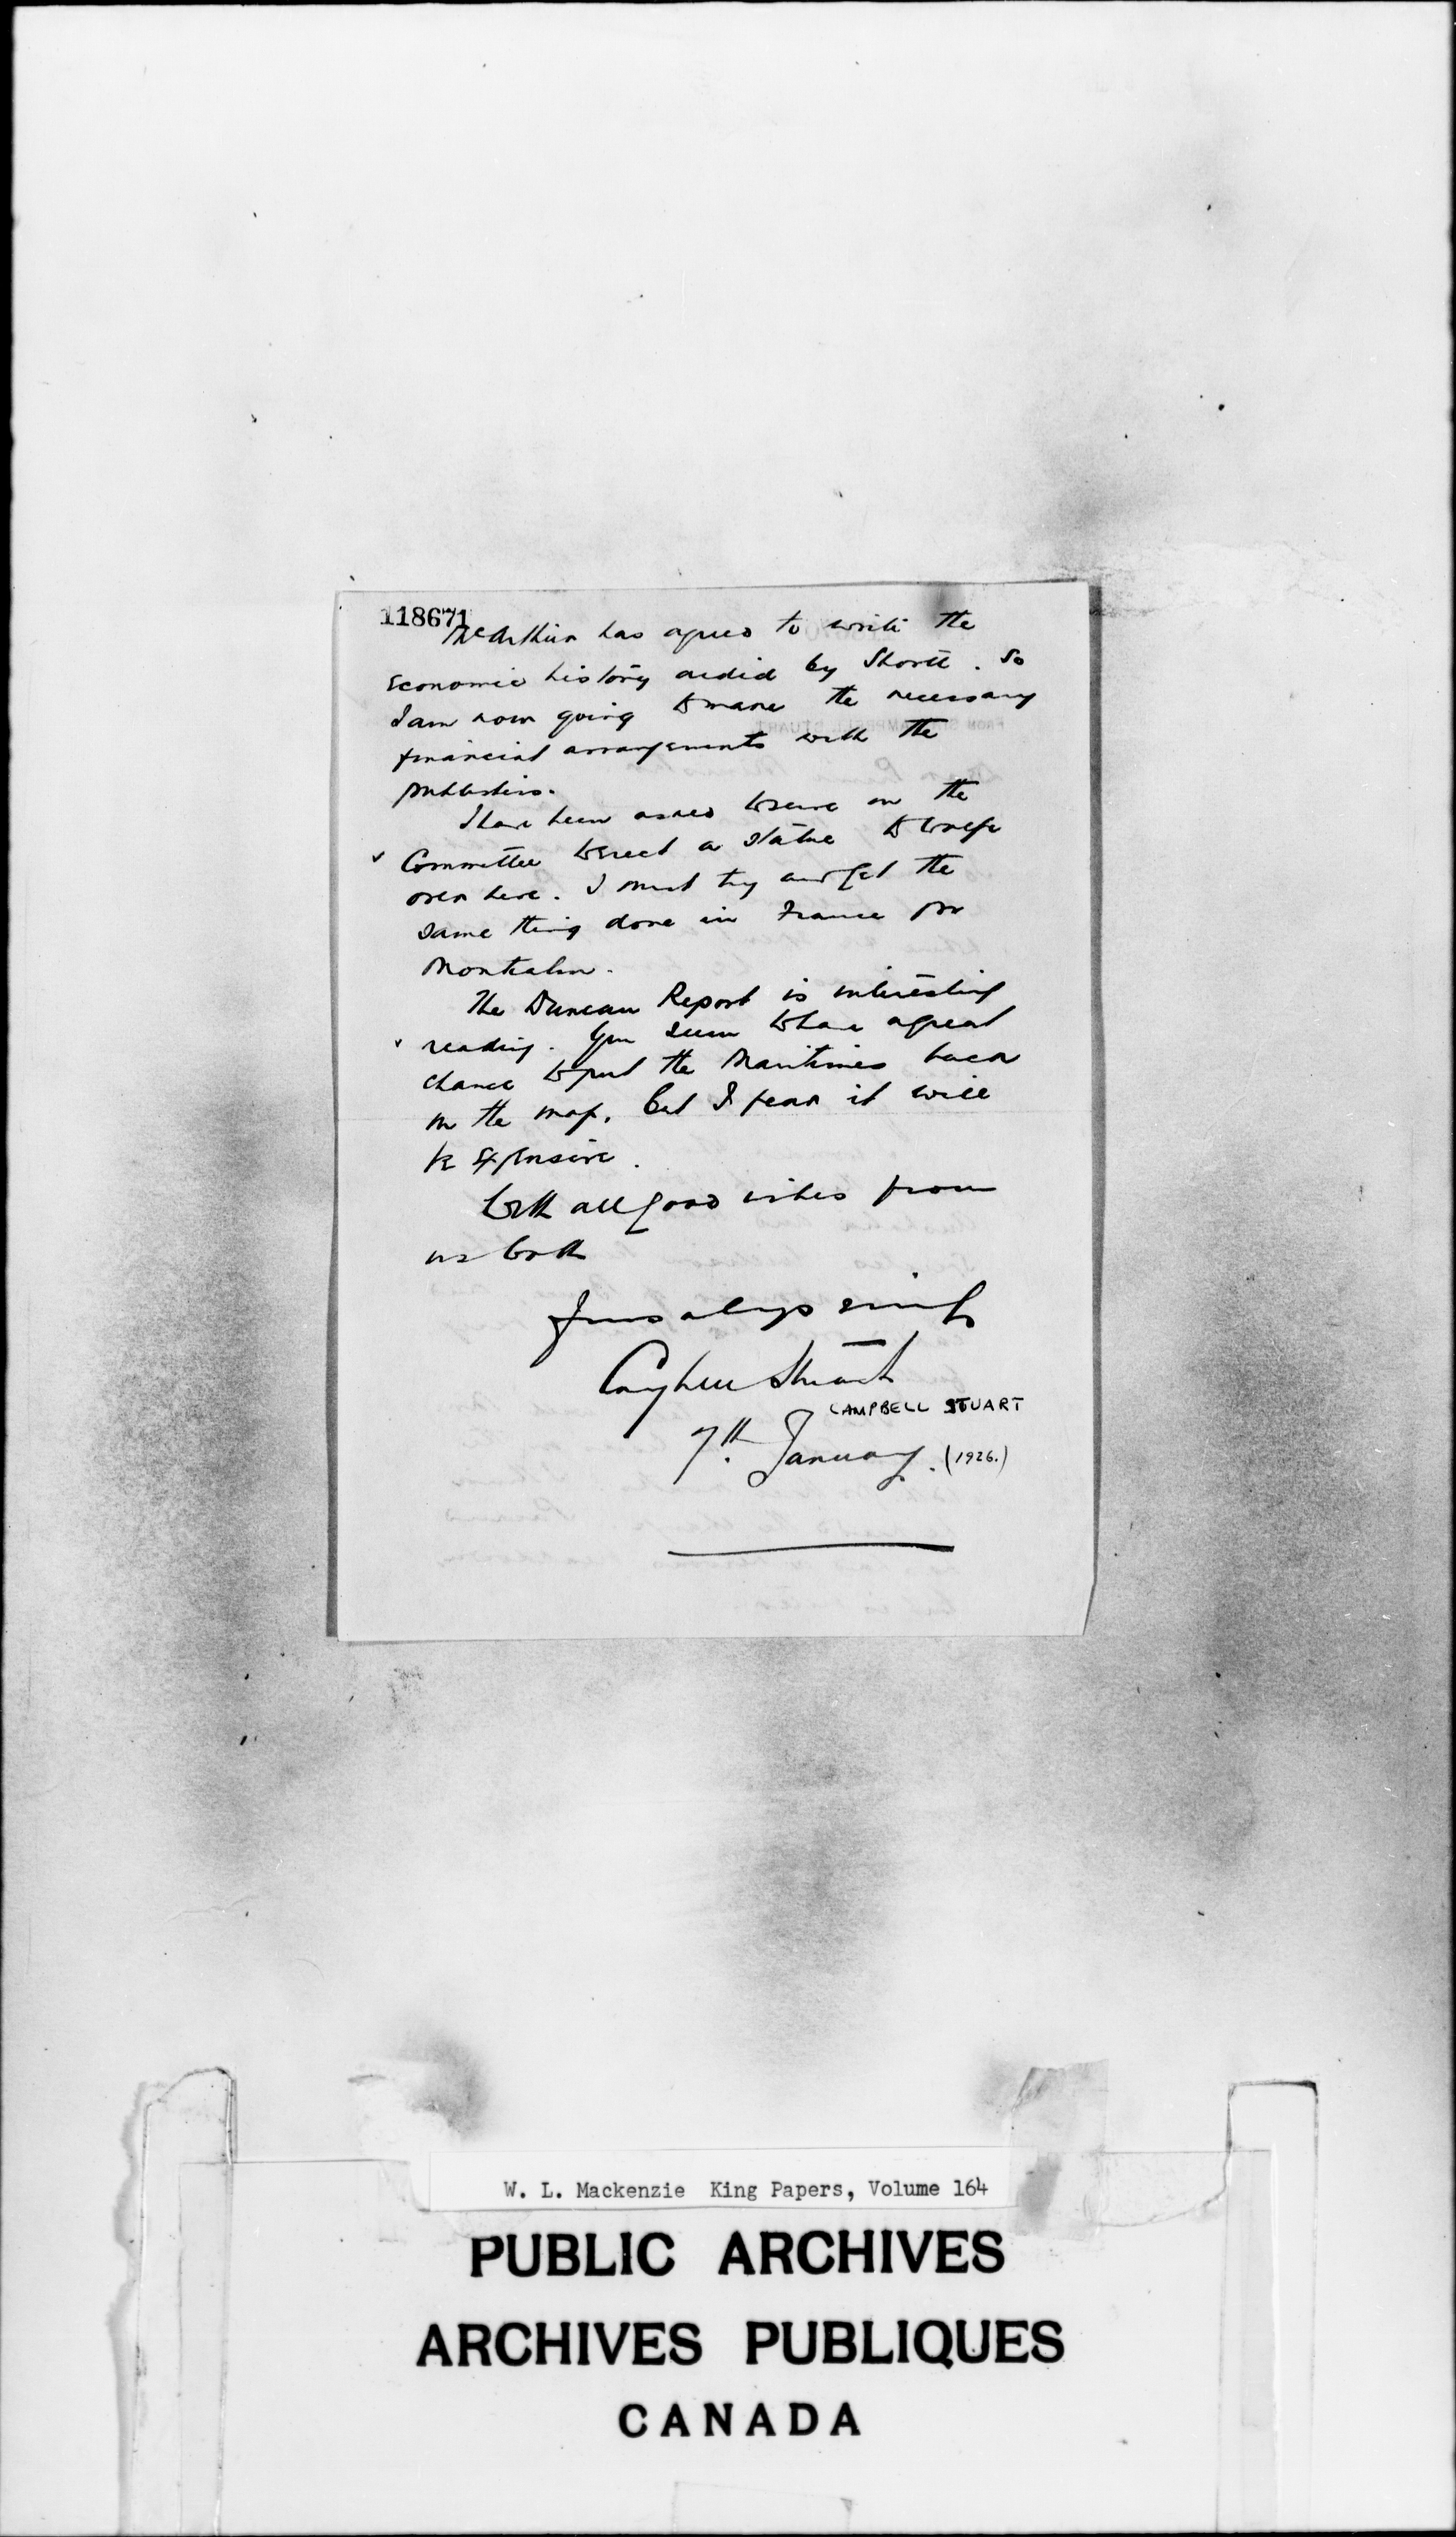 118671
McArthur has agreed to write the
economic history aided by Shortt. So
I am now going to make the necessary
financial arrangements with the
publishers.
I have been asked to serve on the
Committee to erect a statue to Wolfe
over here. I must try and get the
same thing done in France for
Montcalm.
The Duncan Report is interesting
reading. You seem to have a great
chance to put the Maritimes back
on the map, but I fear it will
be expensive.
With all good wishes from
us both
Yours always sincerely
Campbell Stuart
CAMPBELL STUART
7th January. (1926.)
W. L. Mackenzie King Papers, Volume 164
PUBLIC ARCHIVES
ARCHIVES PUBLIQUES
CANADA